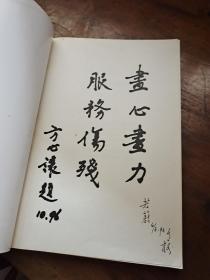 盡心盡力
服務傷殘
方心讓題
10.96